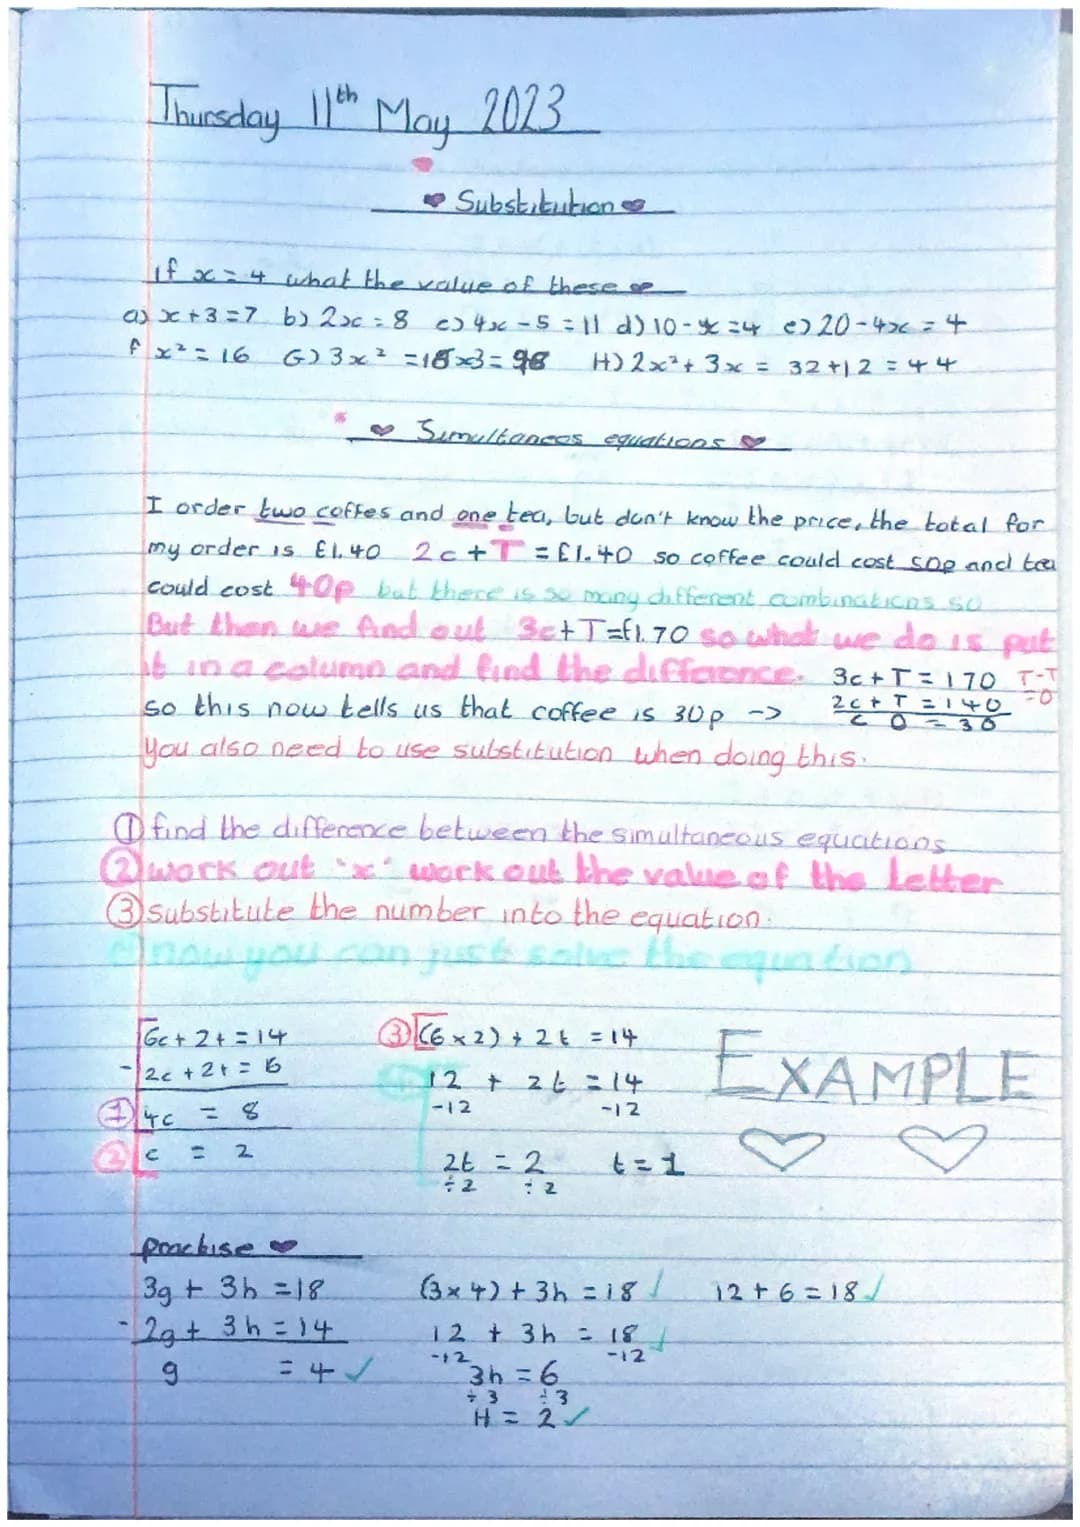 Thursday 11th May 2023
Substitution
if x = 4 what the value of these
a) x + 3 = 7 b) 2x = 8 c) 4x - 5 = 11 d) 10 - x = 4 e) 20 - 4x = 4
f x² = 16 G) 3x² = 16 x3 = 48 H) 2x² + 3x = 32 + 12 = 44
Simultaneos equations
I order two coffes and one tea, but don't know the price, the total for
my order is £1.40 2c + T = £1.40 so coffee could cost 50p and tea
could cost 40p but there is so many different combinations so
But then we find out 3c + T = £1.70 so what we do is put
it in a column and find the difference. 3c + T = 170 T-T
2c + T = 140 =0
so this now tells us that coffee is 30p -> c 0 = 30
you also need to use substitution when doing this.
① find the difference between the simultaneous equations
② work out "x" work out the value of the letter
③ substitute the number into the equation.
now you can just solve the equation
6c + 2t = 14 ③ (6 x 2) + 2t = 14 EXAMPLE
- 2c + 2t = 6 12 + 2t = 14
-12 -12
① 4c = 8
② c = 2 2t = 2 t = 1
÷2 ÷2
practise
3g + 3h = 18 (3 x 4) + 3h = 18 ✓ 12 + 6 = 18 ✓
- 2g + 3h = 14 12 + 3h = 18 ✓
-12 -12
g = 4 ✓ 3h = 6
÷3 ÷3
H = 2 ✓